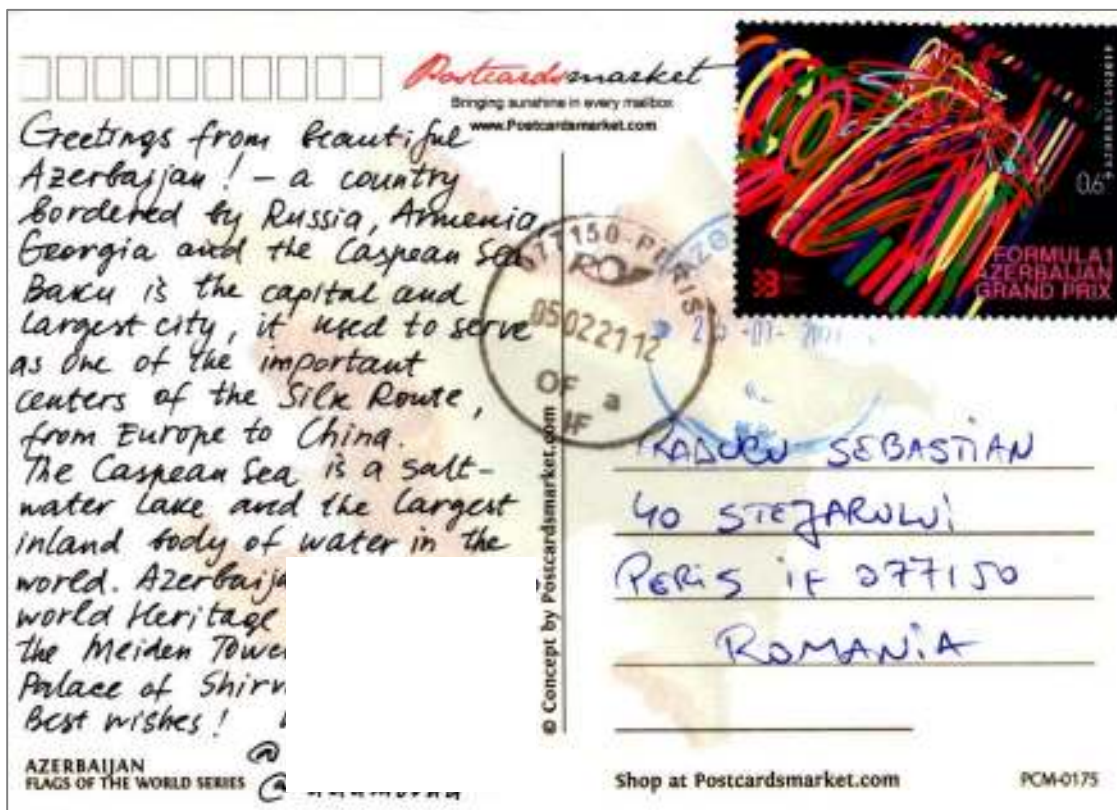 Postcardsmarket
Bringing sunshine in every mailbox
www.Postcardsmarket.com
Greetings from beautiful
Azerbaijan! - a country
bordered by Russia, Armenia,
Georgia and the Caspean Sea
Baku is the capital and
largest city, it used to serve
as one of the important
centers of the Silk Route,
from Europe to China.
The Caspean Sea is a salt-
water lake and the largest
inland body of water in the
world.
world Heritage
the Meiden
Palace of
Best wishes!
AZERBAIJAN
FLAGS OF THE WORLD SERIES
© Concept by Postcardsmarket.com
077150-PERIS
05022112
OF a
IF
AZERBAYCAN
0.6
FORMULA 1
AZERBAIJAN
GRAND PRIX
SEBASTIAN
40 STEJARULUI
PERIS IF 077150
ROMANIA
Shop at Postcardsmarket.com
PCM-0175